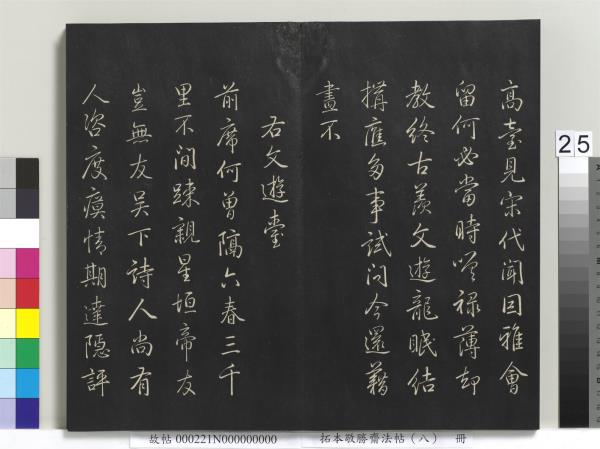 高臺見宋代聞因雅會
留何必當時嘆祿薄却
教終古羨文遊龍眠結
搆應多事試問今還藉
畫不
右文遊臺
前席何曾隔六春三千
里不間踈親星垣帝友
豈無友吳下詩人尚有
人咨度瘼情期達隱評
25
故帖 000221N000000000
拓本敬勝齋法帖（八） 冊